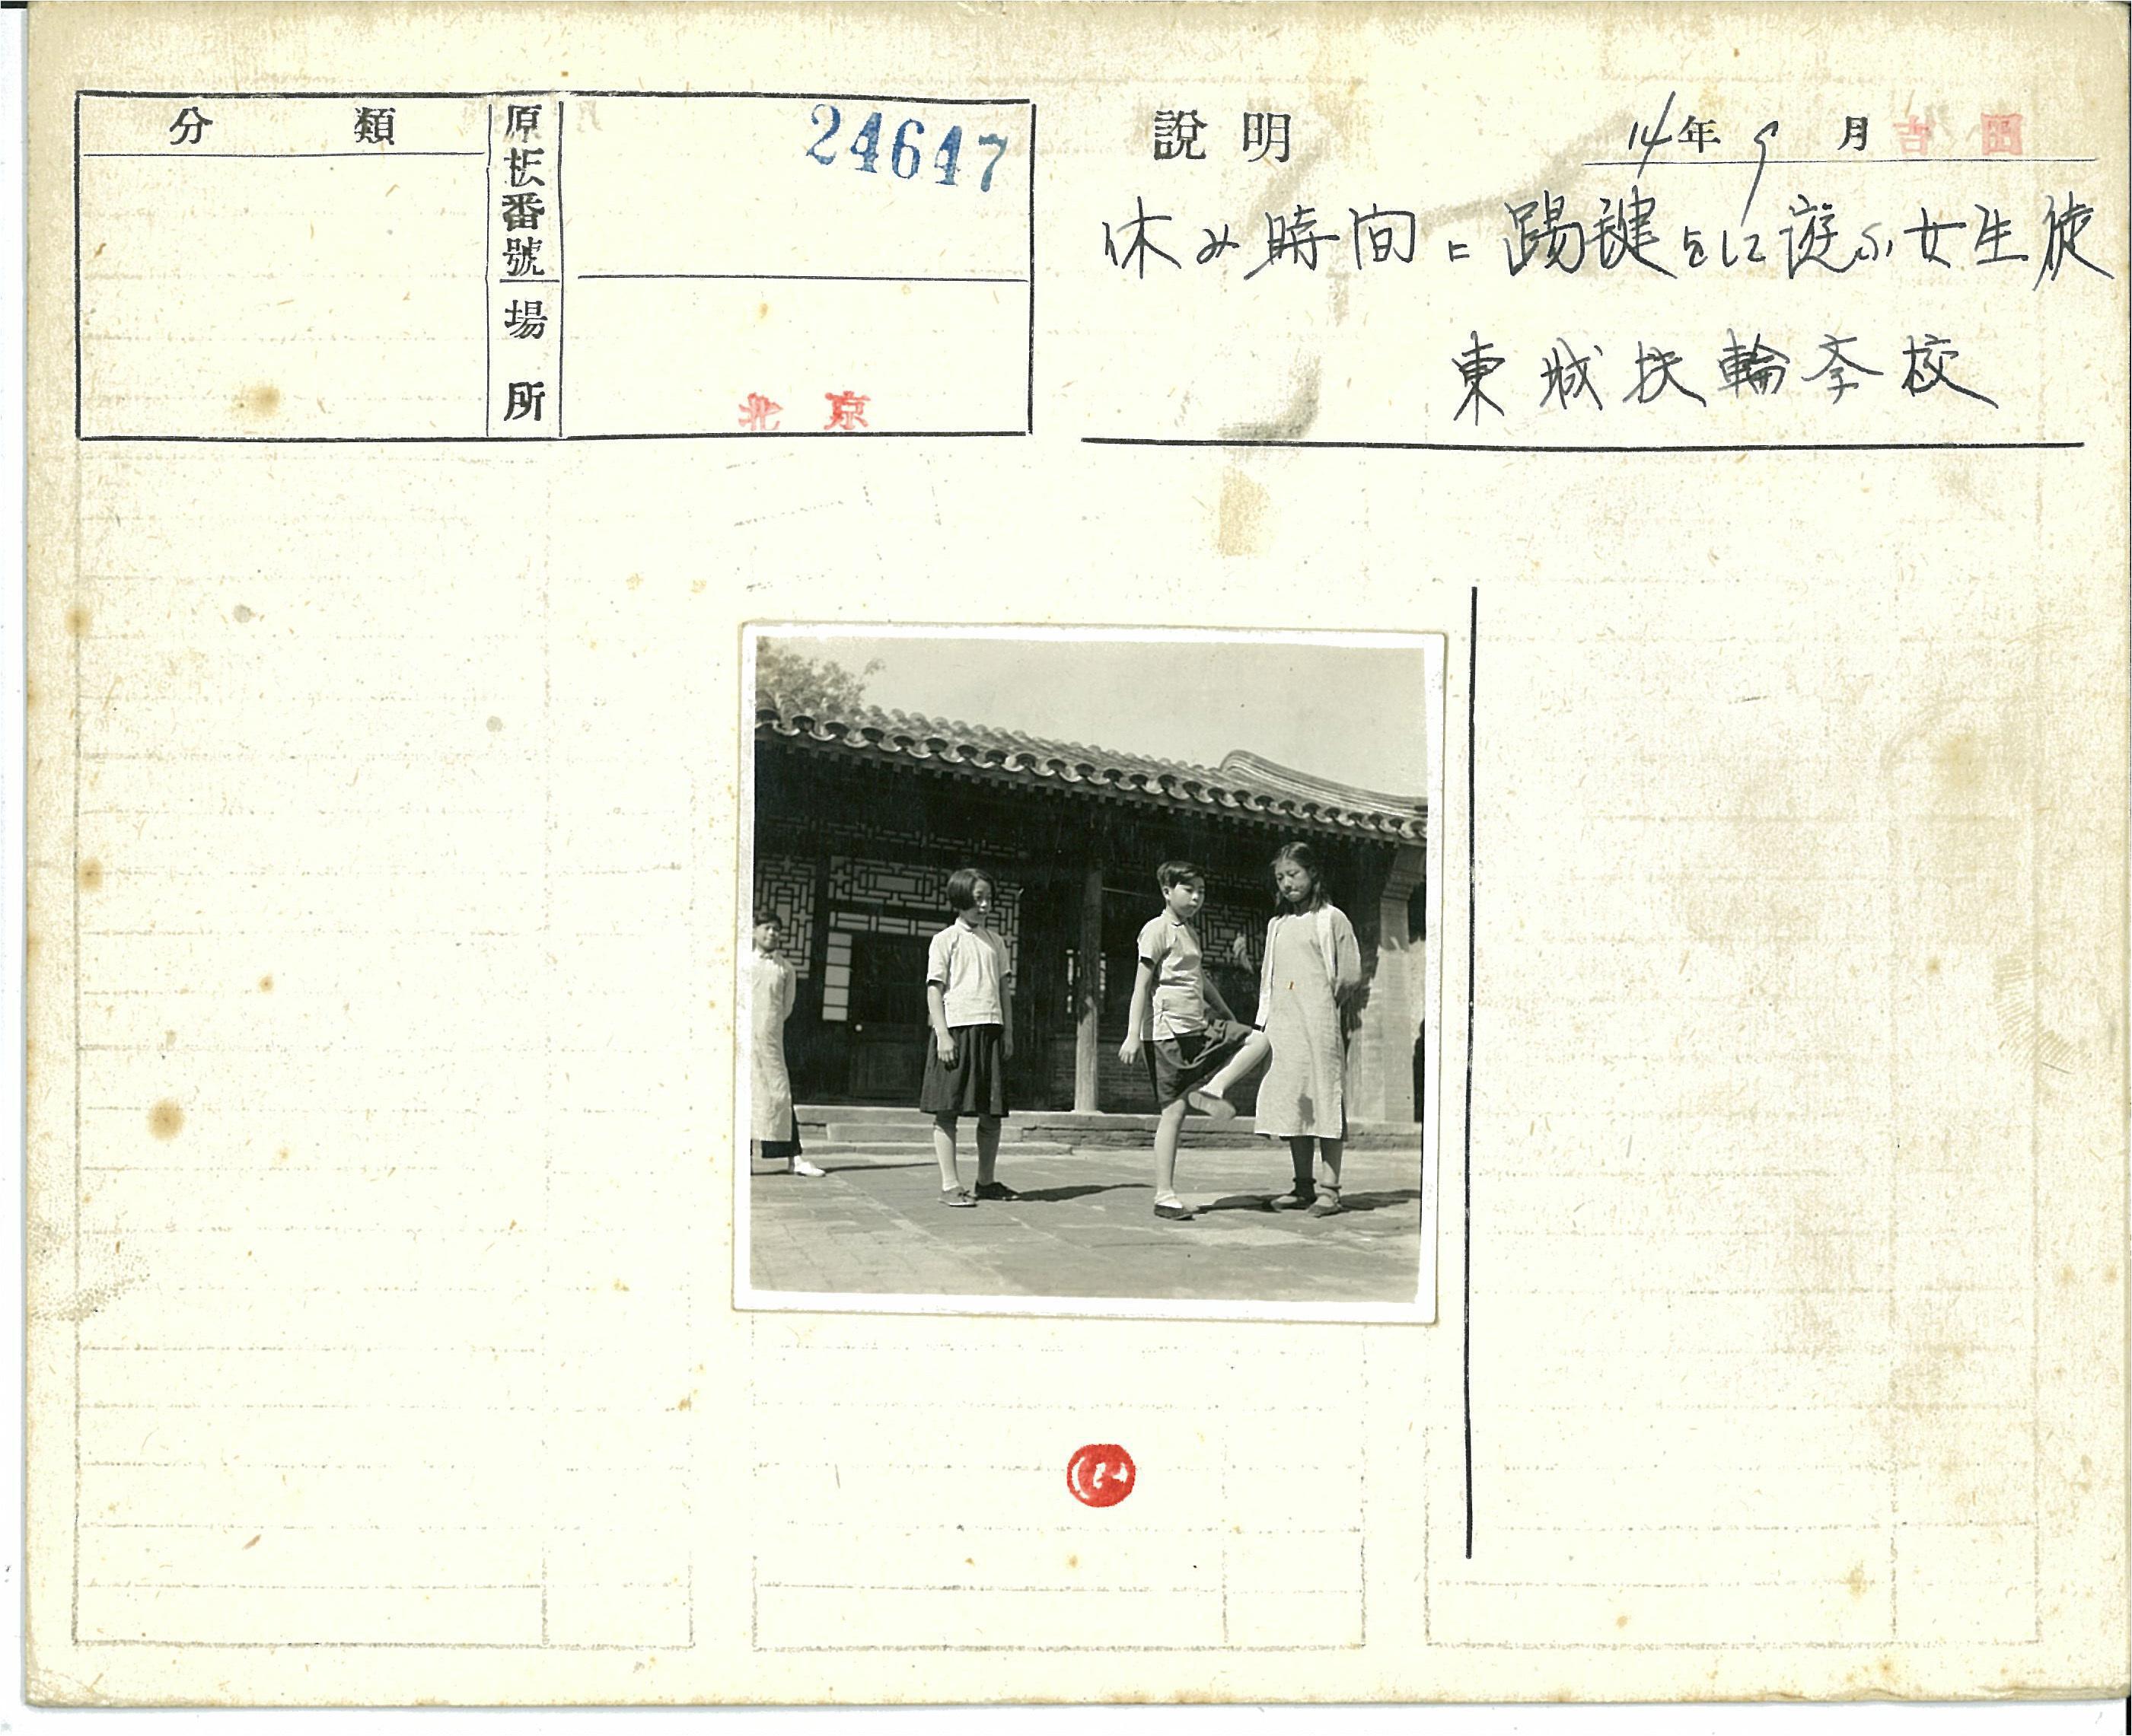 分類
原板番號
24647
場所
北京
說明
14年9月 吉田
休み時間に踢毽をして遊ぶ女生徒
東城扶輪学校